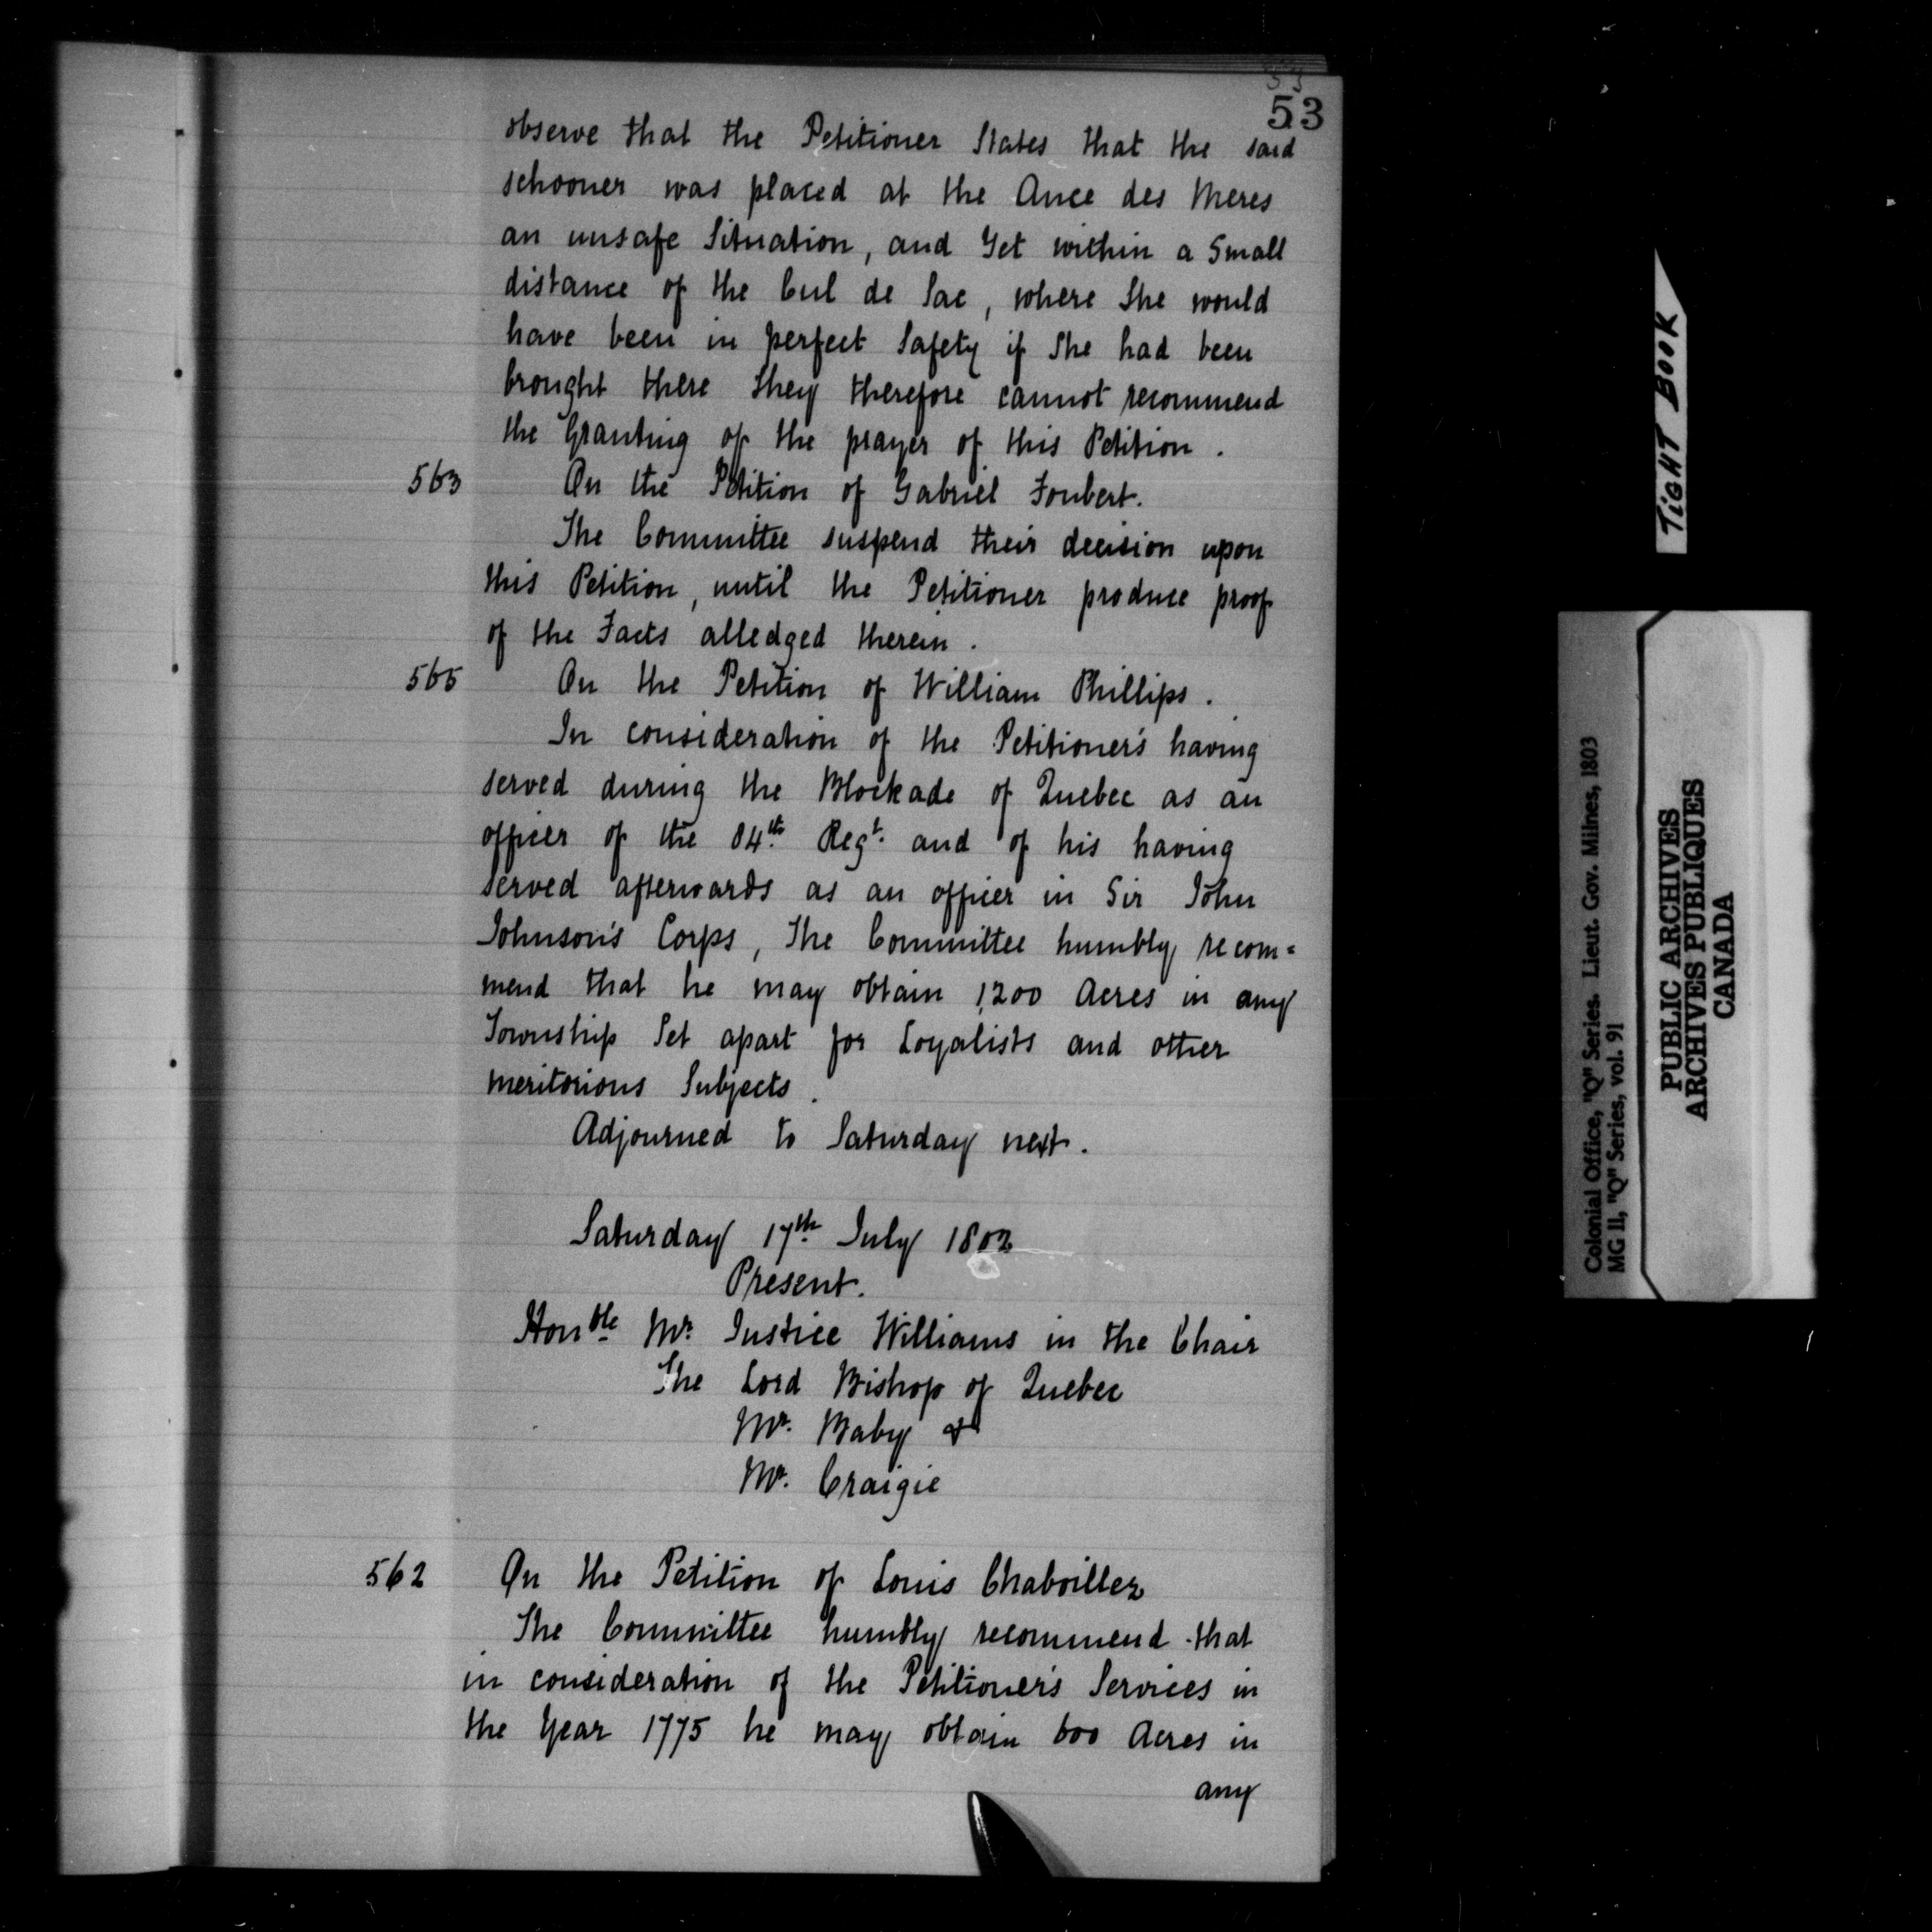 53
53
observe that the Petitioner States that the said
schooner was placed at the Ance des Meres
an unsafe Situation, and Yet within a Small
distance of the Cul de Sac, where She would
have been in perfect Safety if She had been
brought there they therefore cannot recommend
the Granting of the prayer of this Petition.
563 On the Petition of Gabriel Foubert.
The Committee suspend their decision upon
this Petition, until the Petitioner produce proof
of the Facts alledged therein.
565 On the Petition of William Phillips.
In consideration of the Petitioner's having
served during the Blockade of Quebec as an
officer of the 84th. Regt. and of his having
served afterwards as an officer in Sir John
Johnson's Corps, The Committee humbly recom=
mend that he may obtain 1,200 Acres in any
Township Set apart for Loyalists and other
meritorious Subjects.
Adjourned to Saturday next.
Saturday 17th July 1802
Present.
Honble Mr. Justice Williams in the Chair
The Lord Bishop of Quebec
Mr. Baby &
Mr. Craigie
562 On the Petition of Louis Chaboillez
The Committee humbly recommend that
in consideration of the Petitioner's Services in
the Year 1775 he may obtain 600 Acres in
any
TIGHT BOOK
Colonial Office, "Q" Series. Lieut. Gov. Milnes, 1803
MG 11, "Q" Series, vol. 91
PUBLIC ARCHIVES
ARCHIVES PUBLIQUES
CANADA